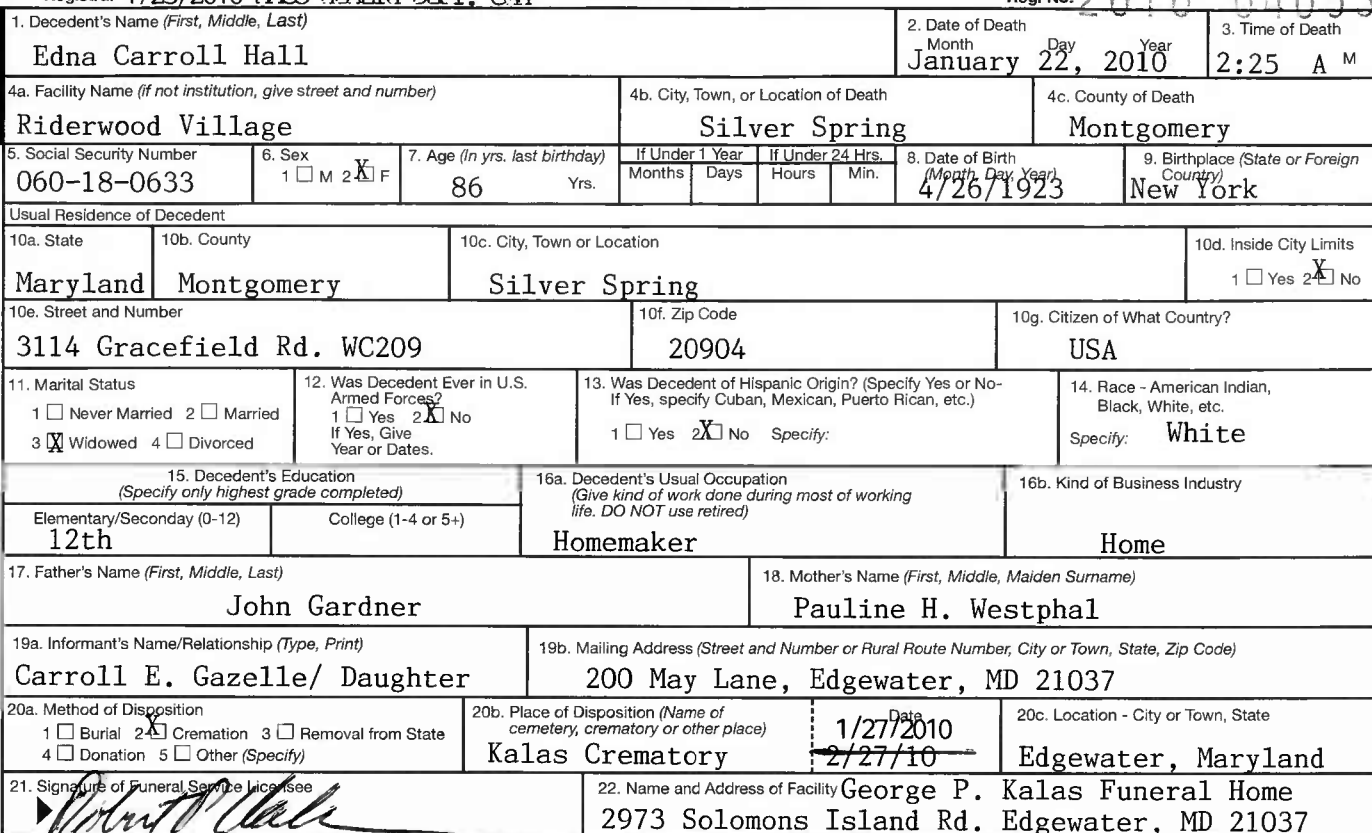 1. Decedent's Name (First, Middle, Last)
Edna Carroll Hall
2. Date of Death
Month Day Year
January 22, 2010
3. Time of Death
2:25 A M
4a. Facility Name (if not institution, give street and number)
Riderwood Village
4b. City, Town, or Location of Death
Silver Spring
4c. County of Death
Montgomery
5. Social Security Number
060-18-0633
6. Sex
1 ☐ M 2 ☒ F
7. Age (In yrs. last birthday)
86 Yrs.
If Under 1 Year
Months Days
If Under 24 Hrs.
Hours Min.
8. Date of Birth
(Month, Day, Year)
4/26/1923
9. Birthplace (State or Foreign
Country)
New York
Usual Residence of Decedent
10a. State
Maryland
10b. County
Montgomery
10c. City, Town or Location
Silver Spring
10d. Inside City Limits
1 ☐ Yes 2 ☒ No
10e. Street and Number
3114 Gracefield Rd. WC209
10f. Zip Code
20904
10g. Citizen of What Country?
USA
11. Marital Status
1 ☐ Never Married 2 ☐ Married
3 ☒ Widowed 4 ☐ Divorced
12. Was Decedent Ever in U.S.
Armed Forces?
1 ☐ Yes 2 ☒ No
If Yes, Give
Year or Dates.
13. Was Decedent of Hispanic Origin? (Specify Yes or No-
If Yes, specify Cuban, Mexican, Puerto Rican, etc.)
1 ☐ Yes 2 ☒ No Specify:
14. Race - American Indian,
Black, White, etc.
Specify: White
15. Decedent's Education
(Specify only highest grade completed)
Elementary/Seconday (0-12)
12th
College (1-4 or 5+)
16a. Decedent's Usual Occupation
(Give kind of work done during most of working
life. DO NOT use retired)
Homemaker
16b. Kind of Business Industry
Home
17. Father's Name (First, Middle, Last)
John Gardner
18. Mother's Name (First, Middle, Maiden Surname)
Pauline H. Westphal
19a. Informant's Name/Relationship (Type, Print)
Carroll E. Gazelle/ Daughter
19b. Mailing Address (Street and Number or Rural Route Number, City or Town, State, Zip Code)
200 May Lane, Edgewater, MD 21037
20a. Method of Disposition
1 ☐ Burial 2 ☒ Cremation 3 ☐ Removal from State
4 ☐ Donation 5 ☐ Other (Specify)
20b. Place of Disposition (Name of
cemetery, crematory or other place)
Kalas Crematory
Date
1/27/2010
2/27/10
20c. Location - City or Town, State
Edgewater, Maryland
21. Signature of Funeral Service Licensee
22. Name and Address of Facility George P. Kalas Funeral Home
2973 Solomons Island Rd. Edgewater, MD 21037